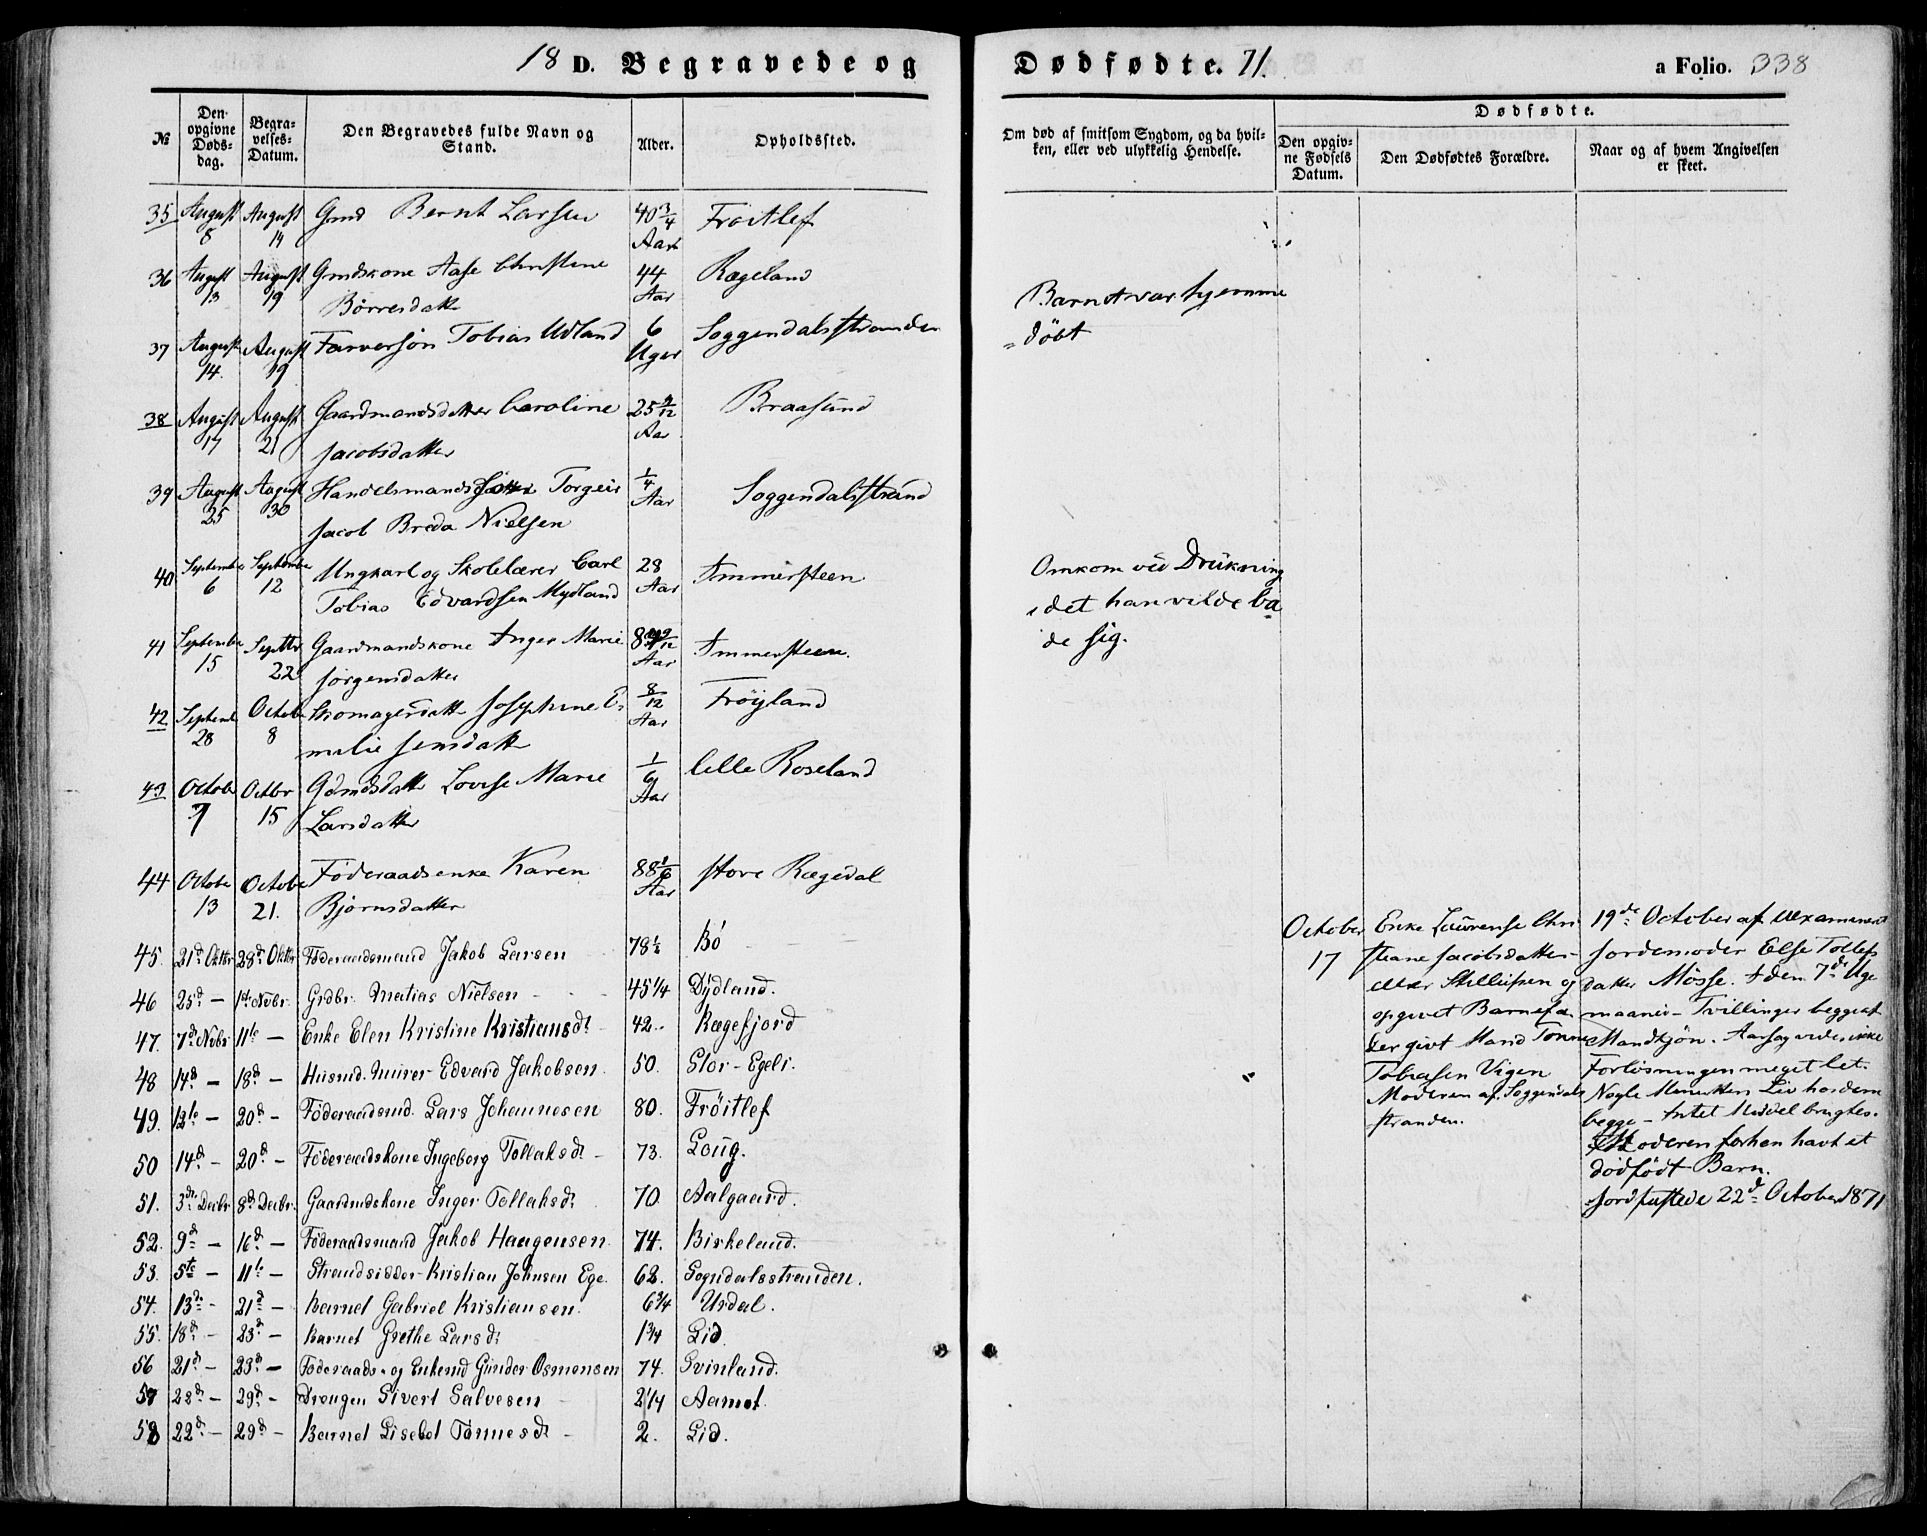 18 D. Begravede og Dødfødte. 71. a Folio. 338
№
Den opgivne Døds-dag.
Begra-velses-Datum.
Den Begravedes fulde Navn og Stand.
Alder.
Opholdssted.
Om død af smitsom Sygdom, og da hvil-
ken, eller ved ulykkelig Hendelse.
Dødfødte.
Den opgiv-
ne Fødsels
Datum.
Den Dødfødtes Forældre.
Naar og af hvem Angivelsen
er skeet.
35 August 8 August 14 Gmd Bernt Larsen 40 3/4 Aar Fröitlef
36 August 13 August 19 Gmdskone Aase Christine 44 Aar Rægeland
Börresdatt
37 August 14. August 19 Farversön Tobias Udland 6 Uger Soggendalsstranden
38 August 17 August 21 Gaardmandsdatter Caroline 25 /12 Aar Braasund
Jacobsdatter
39 August 25 August 30 Handelsmands Torgeir 1/4 Aar Soggendalsstrand
Jacob Breda Nielsen
40 September 6 September 12 Ungkarl og Skolelærer Carl 28 Aar Immersteen
Tobias Edvardsen Mydland
41 September 15 Septbr 22 Gaardmandskone Inger Marie Aar Immersteen.
Jörgensdatter
42 Septemb 28 Octob 8 Skomagerdatt Josephine E- 8/12 Aar Fröyland
milie Jensdatt
43 Octob 7 Octbr 15 Gdmdsdatt Lovise Marie 1/6 Aar lille Roseland
Larsdatter
44 Octobe 13 Octobe 21. Föderaadsenke Karen 88 1/6 Aar store Rægedal
Bjørnsdatter
45. 21d Oktbr 28d Oktbr Föderaadsmand Jakob Larsen 78 1/2 Bö
46 25d – 1ste Nvbr. Grdbr. Matias Nielsen 45 1/4 Dydland.
47. 7d Nvbr 11te – Enke Elen Kristine Kristiansdt 42.. Rægefjord
48 14d – 18d – Husmd. Murer Edvard Jakobsen. 50. Stor-Egeli.
49. 12te – 20d – Föderaadsmd. Lars Johannesen 80. Fröitlef
50 14d – 20d – Föderaadskone Ingeborg Tollaksdt – 73. Loug.
51. 3die Decbr 8d Decbr. Gaardmdskone Inger Tollaksdt 70. Aalgaard.
52. 9d – 16d – Föderaadsmand Jakob Haagensen 74. Birkeland.
53. 5te – 11te – Strandsidder Kristian Johnsen Ege. 62. Sogndalsstranden.
54. 13de – 21d – Barnet Gabriel Kristiansen. 6 3/4 Urdal.
55. 18d – 23d – Barnet Grethe Larsdt 1 3/4 Lid
56 21d – 23d – Föderaads- og Enkemd Gunder Osmonsen 74. Svinland.
57 28d – 29d – Drengen Sivert Salvesen 2 1/4 Aamot.
58 22d – 29d – Barnet Lisebet Tönnesdt – 2. Lid.
Barnet var hjemme
döbt
Omkom ved Drukning
idet han vilde ba
de sig.
October 17
Enke Laurense Chri
stiane Jacobsdatter
eller Skellupsen og
opgivet Barnefa
der givt Mand Tönnes
Tobiasen Vigen
Moderen af Soggendals
stranden.
19de October af examineret
Jordemoder Else Tollefs
datter Mösse. I den 7de Uge
maaned – Tvillinger begge af
Mandkjön. Aarsag vides ikke
Forlösningen meget let.
Nogle Minutters Liv hos dem
begge – Intet Middel brugtes.
Moderen forhen havt et
dödfödt Barn.
Jordfæstede 22d October 1871